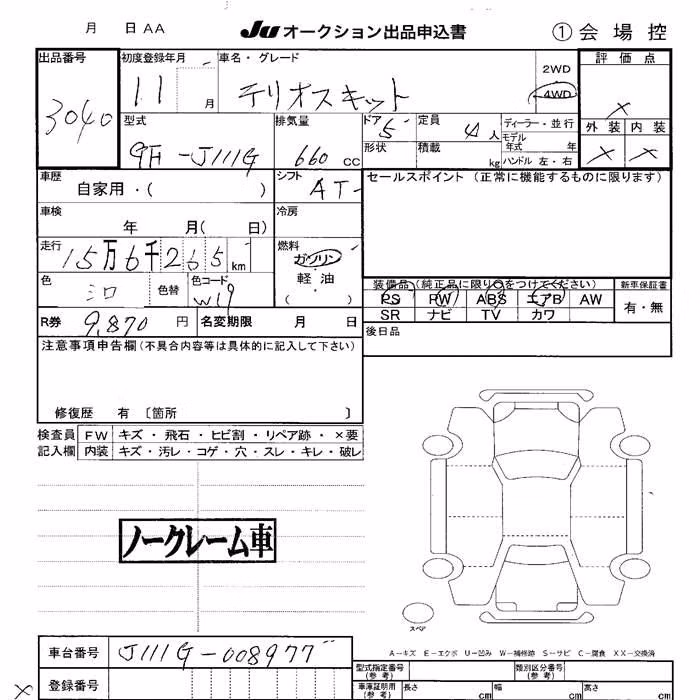 月 日 AA JU オークション出品申込書 ① 会場控
出品番号 初度登録年月 車名・グレード 評価点
3040 11 月 テリオスキット 2WD 4WD ×
型式 排気量 ドア 5 定員 4 人 ディーラー・並行 外装 内装
GF-J111G 660 cc 形状 積載 kg モデル年式 年 × ×
ハンドル 左・右
車歴 自家用・( ) シフト AT セールスポイント (正常に機能するものに限ります)
車検 年 月( 日) 冷房
走行 15万6千265 km 燃料 ガソリン
色 シロ 色替 色コード W19 軽油 ( )
装備品(純正品に限り○をつけてください) 新車保証書
PS PW ABS エアB AW 有・無
SR ナビ TV カワ
R券 9,870 円 名変期限 月 日 後日品
注意事項申告欄(不具合内容等は具体的に記入して下さい)
修復歴 有 〔箇所 〕
検査員 FW キズ・飛石・ヒビ割・リペア跡・×要
記入欄 内装 キズ・汚レ・コゲ・穴・スレ・キレ・破レ
ノークレーム車
スペア
A-キズ E-エクボ U-凹み W-補修跡 S-サビ C-腐食 XX-交換済
車台番号 J111G-008977 型式指定番号(参考) 類別区分番号(参考)
× 登録番号 車庫証明用(参考) 長さ cm 幅 cm 高さ cm